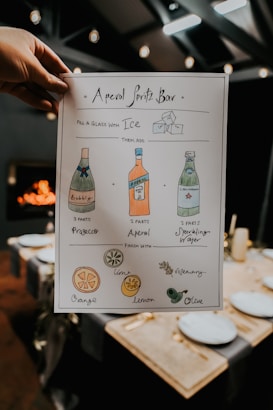 Aperol Spritz Bar
Fill a glass with Ice
then add
Bubbly
3 parts 2 parts 1 parts
Prosecco Aperol Sparkling Water
finish with
Lime Rosemary
Orange Lemon Olive